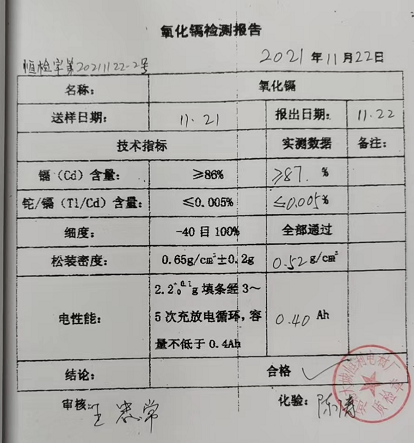 氧化镉检测报告
恒检字第20211122-2号 2021年11月22日
名称： 氧化镉
送样日期： 11.21 报出日期： 11.22
技术指标 实测数据 备注：
镉（Cd）含量： ≥86% ≥87.%
铊/镉（Tl/Cd）含量： ≤0.005% ≤0.005%
细度： -40目100% 全部通过
松装密度： 0.65g/cm³±0.2g 0.52g/cm³
电性能： 2.2 +0.1 -0 g填条经3～
5次充放电循环，容 0.40 Ah
量不低于0.4Ah
结论： 合格 ✓
审核： 王 常 化验： 陈
质检